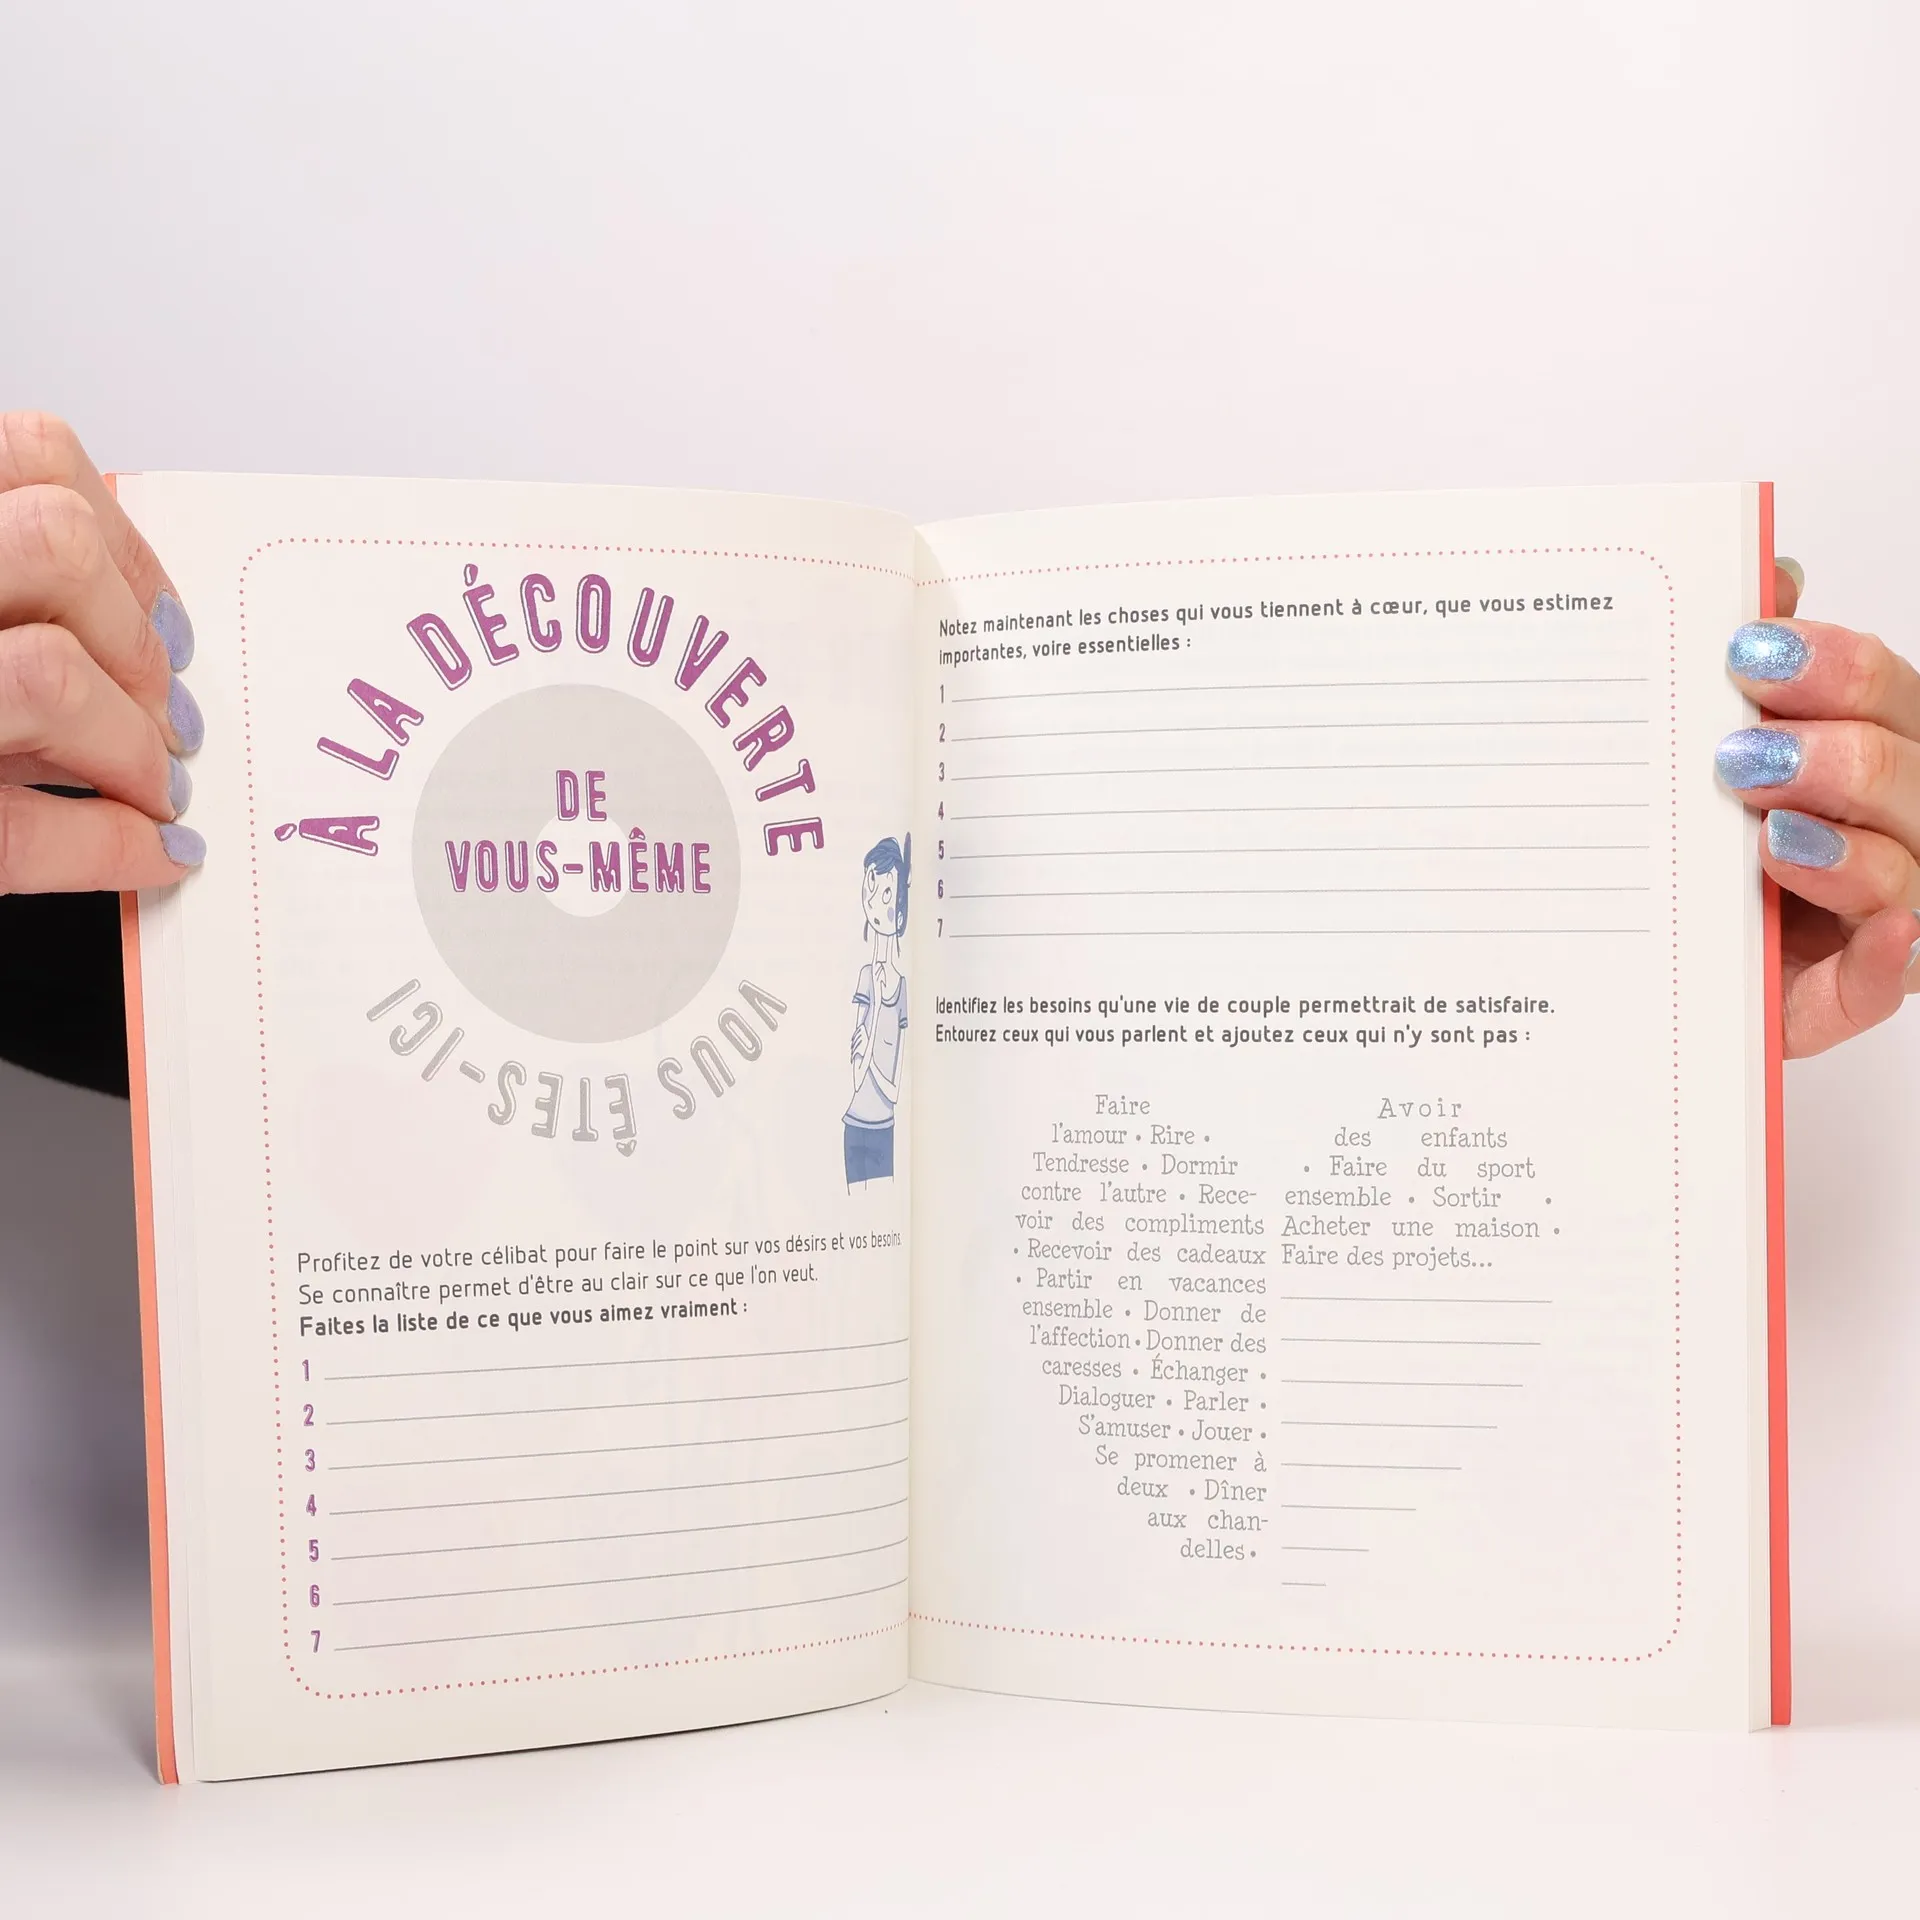 À LA DÉCOUVERTE
DE
VOUS-MÊME
VOUS ÊTES-ICI
Profitez de votre célibat pour faire le point sur vos désirs et vos besoins.
Se connaître permet d'être au clair sur ce que l'on veut.
Faites la liste de ce que vous aimez vraiment :
1
2
3
4
5
6
7
Notez maintenant les choses qui vous tiennent à cœur, que vous estimez
importantes, voire essentielles :
1
2
3
4
5
6
7
Identifiez les besoins qu'une vie de couple permettrait de satisfaire.
Entourez ceux qui vous parlent et ajoutez ceux qui n'y sont pas :
Faire
l'amour • Rire •
Tendresse • Dormir
contre l'autre • Rece-
voir des compliments
• Recevoir des cadeaux
• Partir en vacances
ensemble • Donner de
l'affection • Donner des
caresses • Échanger •
Dialoguer • Parler •
S'amuser • Jouer •
Se promener à
deux • Dîner
aux chan-
delles •
Avoir
des enfants
• Faire du sport
ensemble • Sortir •
Acheter une maison •
Faire des projets...